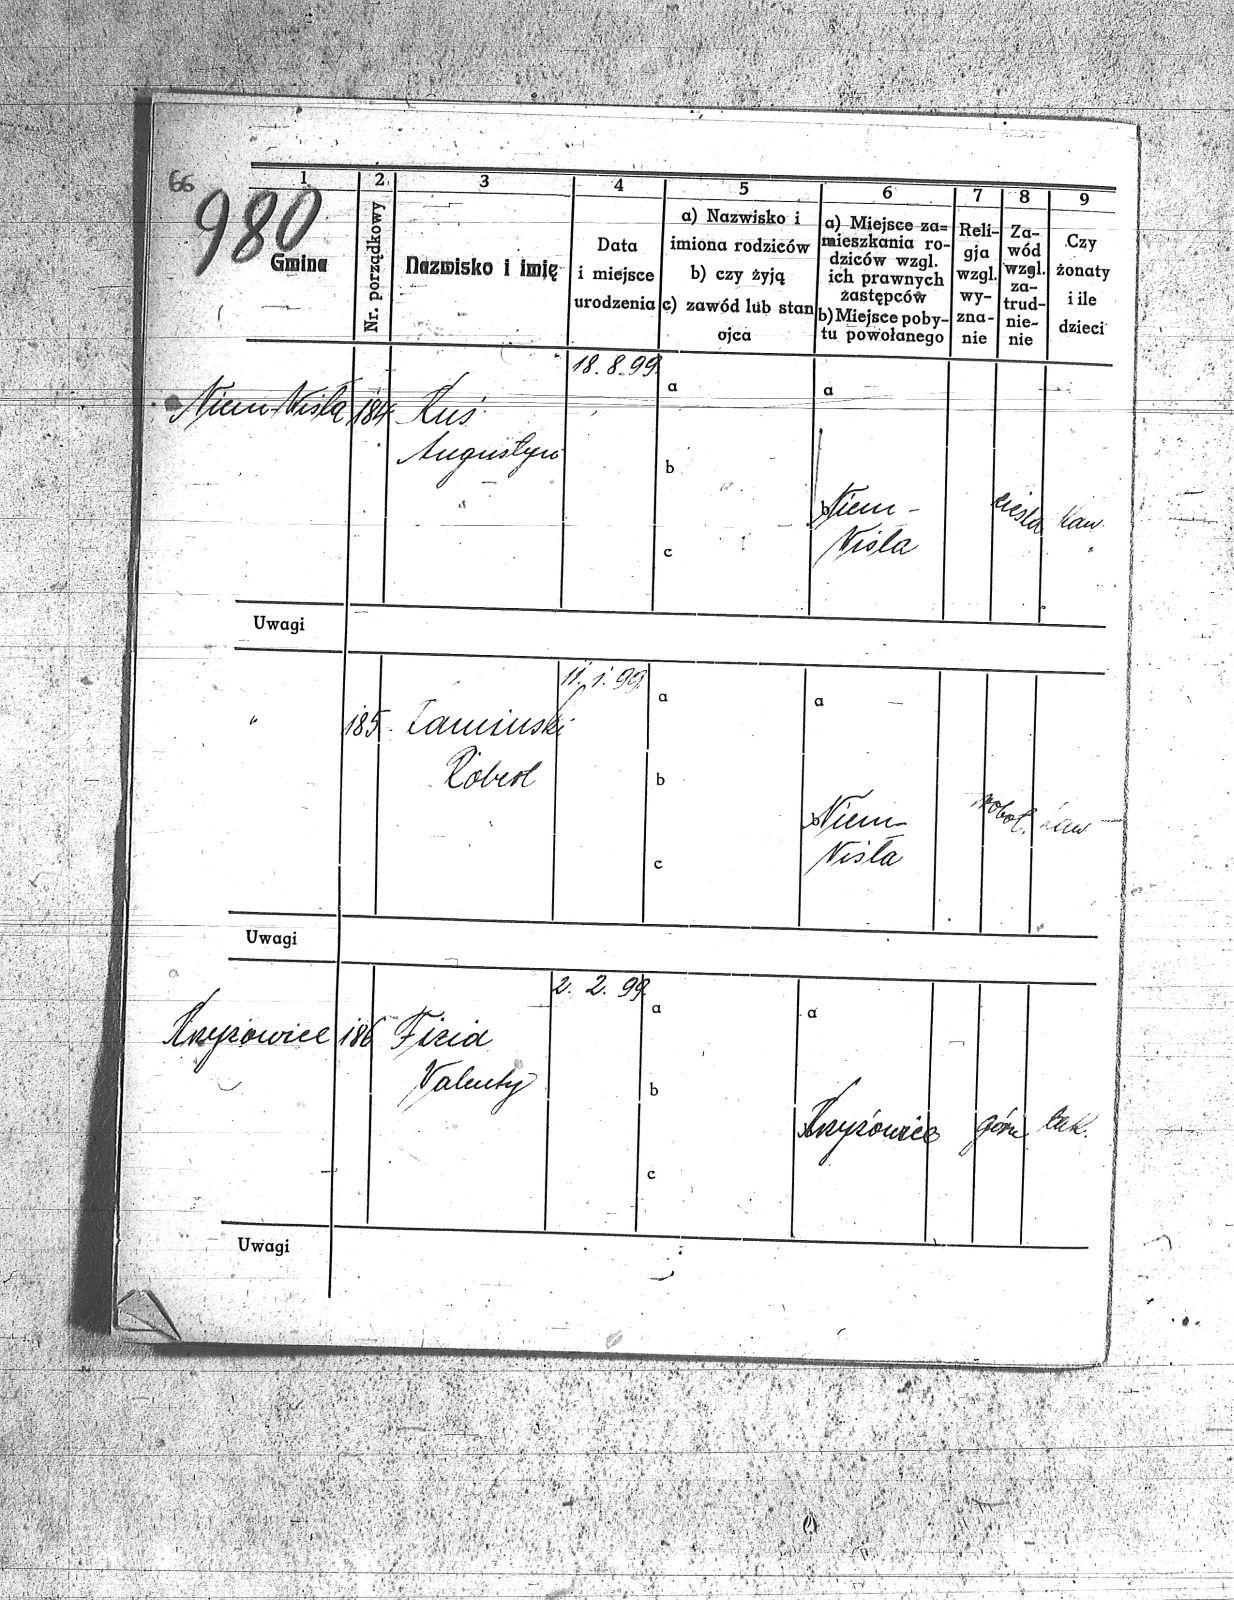 66
980
1 2 3 4 5 6 7 8 9
Gmina
Nr. porządkowy
Nazwisko i imię
Data
i miejsce
urodzenia
a) Nazwisko i
imiona rodziców
b) czy żyją
c) zawód lub stan
ojca
a) Miejsce za=
mieszkania ro-
dziców wzgl.
ich prawnych
zastępców
b) Miejsce poby-
tu powołanego
Reli-
gja
wzgl.
wy-
zna-
nie
Za-
wód
wzgl.
za-
trud-
nie-
nie
Czy
żonaty
i ile
dzieci
18. 8. 99.
Niem Wisła 184 Kuś
Augustyn
a
b
c
a
b
Niem-
Wisła
cieśla kaw.
Uwagi
11. 1. 99.
" 185.
Robert
a
b
c
a
b
Niem-
Wisła
robot. kaw
Uwagi
2. 2. 99.
Krzyżowice 186 Fizia
Valenty
a
b
c
a
Krzyżowice
górn tak.
Uwagi